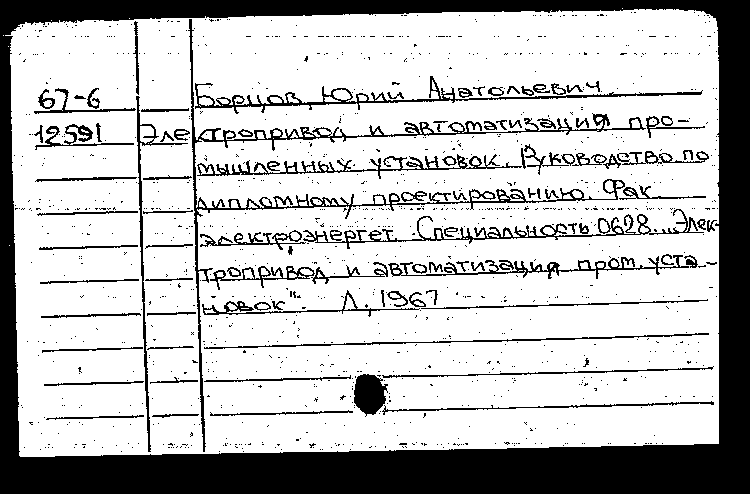 67-6 Борцов, Юрий Анатольевич
12591 Электропривод и автоматизация про-
мышленных установок. Руководство по
дипломному проектированию. Фак.
электроэнергет. Специальность 0628. „Элек-
тропривод и автоматизация пром. уста-
новок". Л., 1967